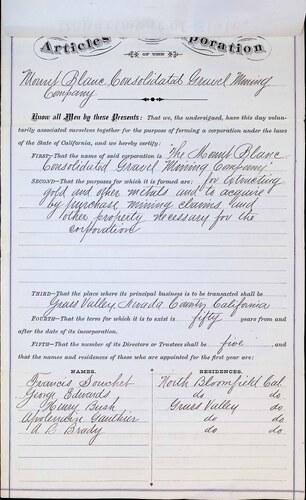 Articles of Incorporation
OF THE
Mount Blanc Consolidated Gravel Mining
Company
Know all Men by these Presents: That we, the undersigned, have this day volun-
tarily associated ourselves together for the purpose of forming a corporation under the laws
of the State of California, and we hereby certify:
FIRST—That the name of said corporation is "The Mount Blanc
Consolidated Gravel Mining Company"
SECOND—That the purposes for which it is formed are: for extracting
gold and other metals and to acquire
by purchase mining claims and
other property necessary for the
corporation
THIRD—That the place where its principal business is to be transacted shall be
Grass Valley, Nevada County California
FOURTH—That the term for which it is to exist is fifty years from and
after the date of its incorporation.
FIFTH—That the number of its Directors or Trustees shall be five and
that the names and residences of those who are appointed for the first year are:
NAMES. RESIDENCES.
Francis Souchet North Bloomfield Cal.
George Edwards do do.
Henry Bush Grass Valley do.
Apolenaire Gauthier do do.
A B Brady do do.